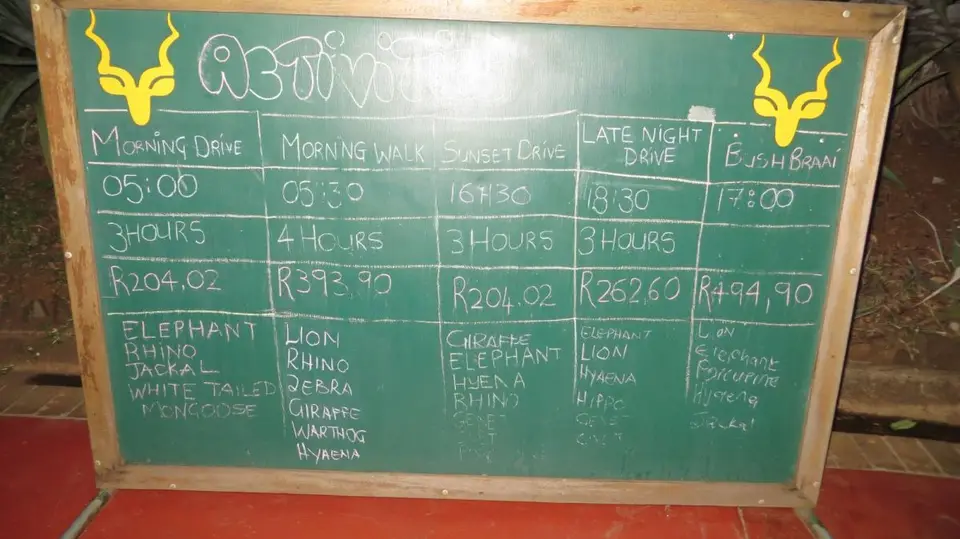 MORNING DRIVE
05:00
3HOURS
R204.02
ELEPHANT
RHINO
JACKAL
WHITE TAILED
MONGOOSE
MORNING WALK
05:30
4 HOURS
R393,90
LION
RHINO
ZEBRA
GIRAFFE
WARTHOG
HYAENA
SUNSET DRIVE
16H30
3 HOURS
R204.02
GIRAFFE
ELEPHANT
HYENA
RHINO
GENET
LATE NIGHT
DRIVE
18:30
3 HOURS
R262,60
ELEPHANT
LION
HYAENA
HIPPO
GENET
CIVET
BUSH BRAAI
17:00
R494,90
LION
Elephant
Porcupine
Hyaena
Jackal